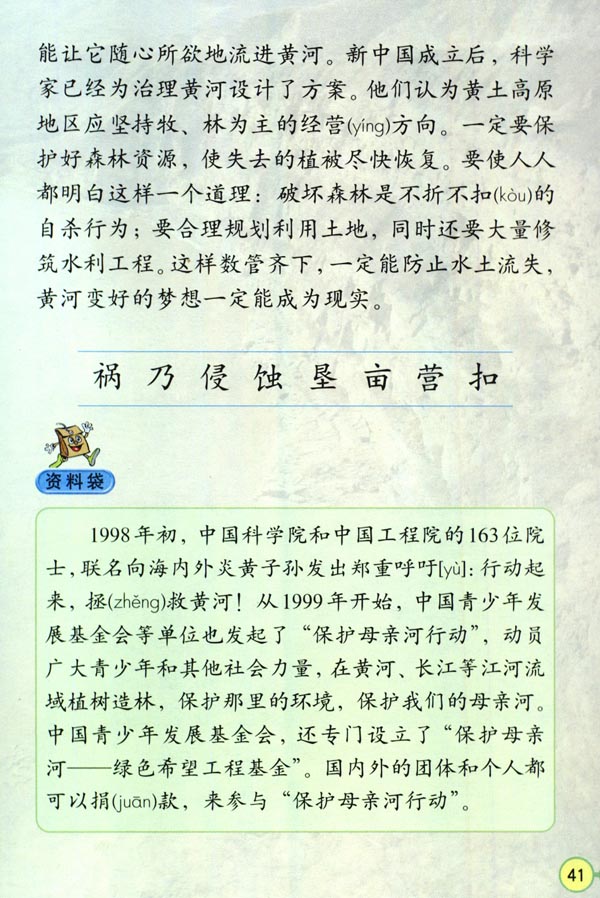 能让它随心所欲地流进黄河。新中国成立后，科学
家已经为治理黄河设计了方案。他们认为黄土高原
地区应坚持牧、林为主的经营(yíng)方向。一定要保
护好森林资源，使失去的植被尽快恢复。要使人人
都明白这样一个道理：破坏森林是不折不扣(kòu)的
自杀行为；要合理规划利用土地，同时还要大量修
筑水利工程。这样数管齐下，一定能防止水土流失，
黄河变好的梦想一定能成为现实。
祸 乃 侵 蚀 垦 亩 营 扣
资料袋
1998年初，中国科学院和中国工程院的163位院
士，联名向海内外炎黄子孙发出郑重呼吁[yù]：行动起
来，拯(zhěng)救黄河！从1999年开始，中国青少年发
展基金会等单位也发起了“保护母亲河行动”，动员
广大青少年和其他社会力量，在黄河、长江等江河流
域植树造林，保护那里的环境，保护我们的母亲河。
中国青少年发展基金会，还专门设立了“保护母亲
河——绿色希望工程基金”。国内外的团体和个人都
可以捐(juān)款，来参与“保护母亲河行动”。
41